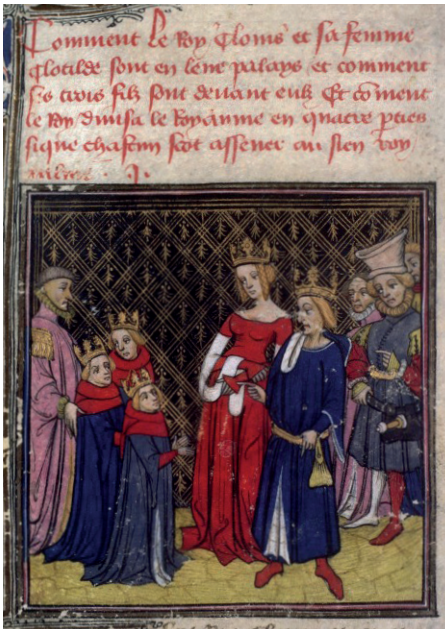 Comment Le Roy Clouis et sa femme
Clotilde sont en leur palays et comment
ses trois filz sont deuant eulx Et cōment
le Roy diuisa le Royaume en quatre pties
sique chascun scot assener au sien Roy